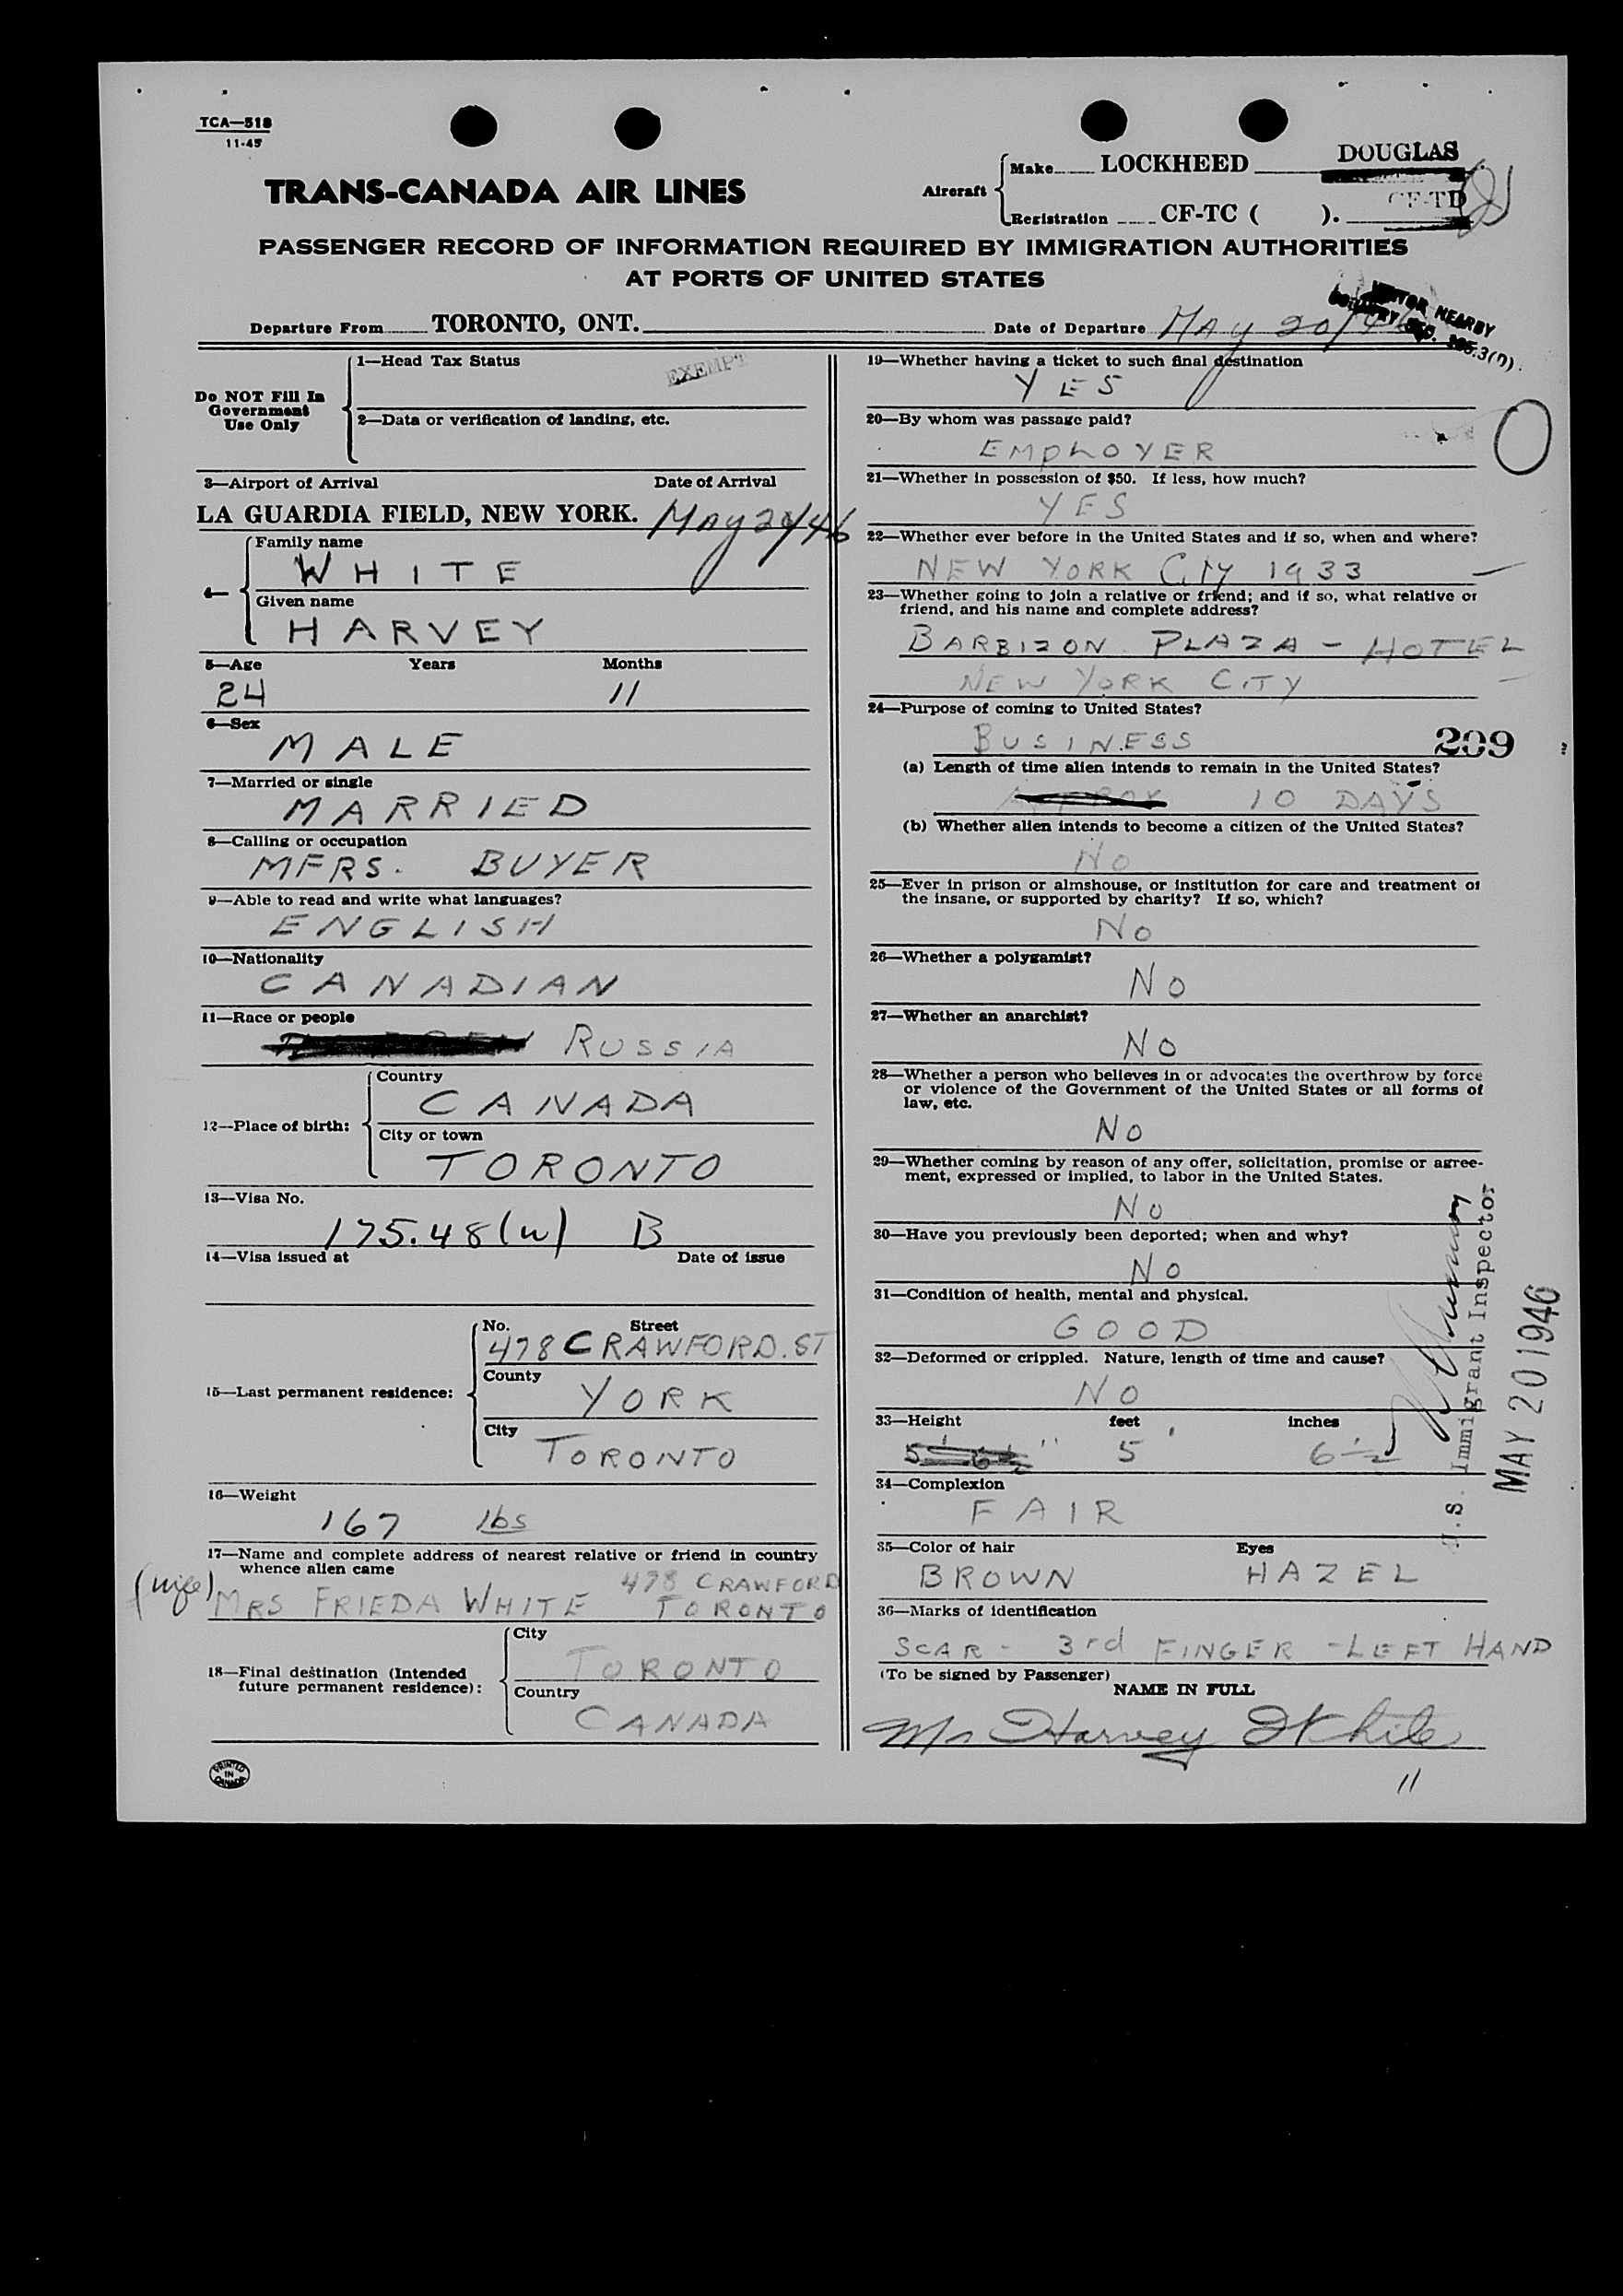 TCA—518
11-45
TRANS-CANADA AIR LINES
Aircraft
Make LOCKHEED DOUGLAS
Registration CF-TC ( ). CF-TD
PASSENGER RECORD OF INFORMATION REQUIRED BY IMMIGRATION AUTHORITIES
AT PORTS OF UNITED STATES
VISITOR NEARBY
COUNTRY SEC. 3(7).
Departure From TORONTO, ONT. Date of Departure MAY 20/46
Do NOT Fill In
Government
Use Only
1—Head Tax Status
EXEMPT
2—Data or verification of landing, etc.
3—Airport of Arrival Date of Arrival
LA GUARDIA FIELD, NEW YORK. May 20/46
4—
Family name
WHITE
Given name
HARVEY
5—Age Years Months
24 11
6—Sex
MALE
7—Married or single
MARRIED
8—Calling or occupation
MFRS. BUYER
9—Able to read and write what languages?
ENGLISH
10—Nationality
CANADIAN
11—Race or people
RUSSIA
12—Place of birth:
Country
CANADA
City or town
TORONTO
13—Visa No.
175.48(w) B
14—Visa issued at Date of issue
15—Last permanent residence:
No. Street
478 CRAWFORD. ST
County
YORK
City
TORONTO
16—Weight
167 lbs
17—Name and complete address of nearest relative or friend in country
whence alien came
478 CRAWFORD
(wife) MRS FRIEDA WHITE TORONTO
18—Final destination (Intended
future permanent residence):
City
TORONTO
Country
CANADA
PRINTED
IN
CANADA
19—Whether having a ticket to such final destination
YES
20—By whom was passage paid?
EMPLOYER
21—Whether in possession of $50. If less, how much?
YES
22—Whether ever before in the United States and if so, when and where?
NEW YORK CITY 1933
23—Whether going to join a relative or friend; and if so, what relative or
friend, and his name and complete address?
BARBIZON PLAZA - HOTEL
NEW YORK CITY
24—Purpose of coming to United States?
BUSINESS
209
(a) Length of time alien intends to remain in the United States?
10 DAYS
(b) Whether alien intends to become a citizen of the United States?
NO
25—Ever in prison or almshouse, or institution for care and treatment of
the insane, or supported by charity? If so, which?
NO
26—Whether a polygamist?
NO
27—Whether an anarchist?
NO
28—Whether a person who believes in or advocates the overthrow by force
or violence of the Government of the United States or all forms of
law, etc.
NO
29—Whether coming by reason of any offer, solicitation, promise or agree-
ment, expressed or implied, to labor in the United States.
NO
30—Have you previously been deported; when and why?
NO
31—Condition of health, mental and physical.
GOOD
32—Deformed or crippled. Nature, length of time and cause?
NO
33—Height feet inches
5' 6½" 5' 6½
34—Complexion
FAIR
35—Color of hair Eyes
BROWN HAZEL
36—Marks of identification
SCAR - 3rd FINGER - LEFT HAND
(To be signed by Passenger)
NAME IN FULL
Mr Harvey White
11
U.S. Immigrant Inspector
MAY 20 1946